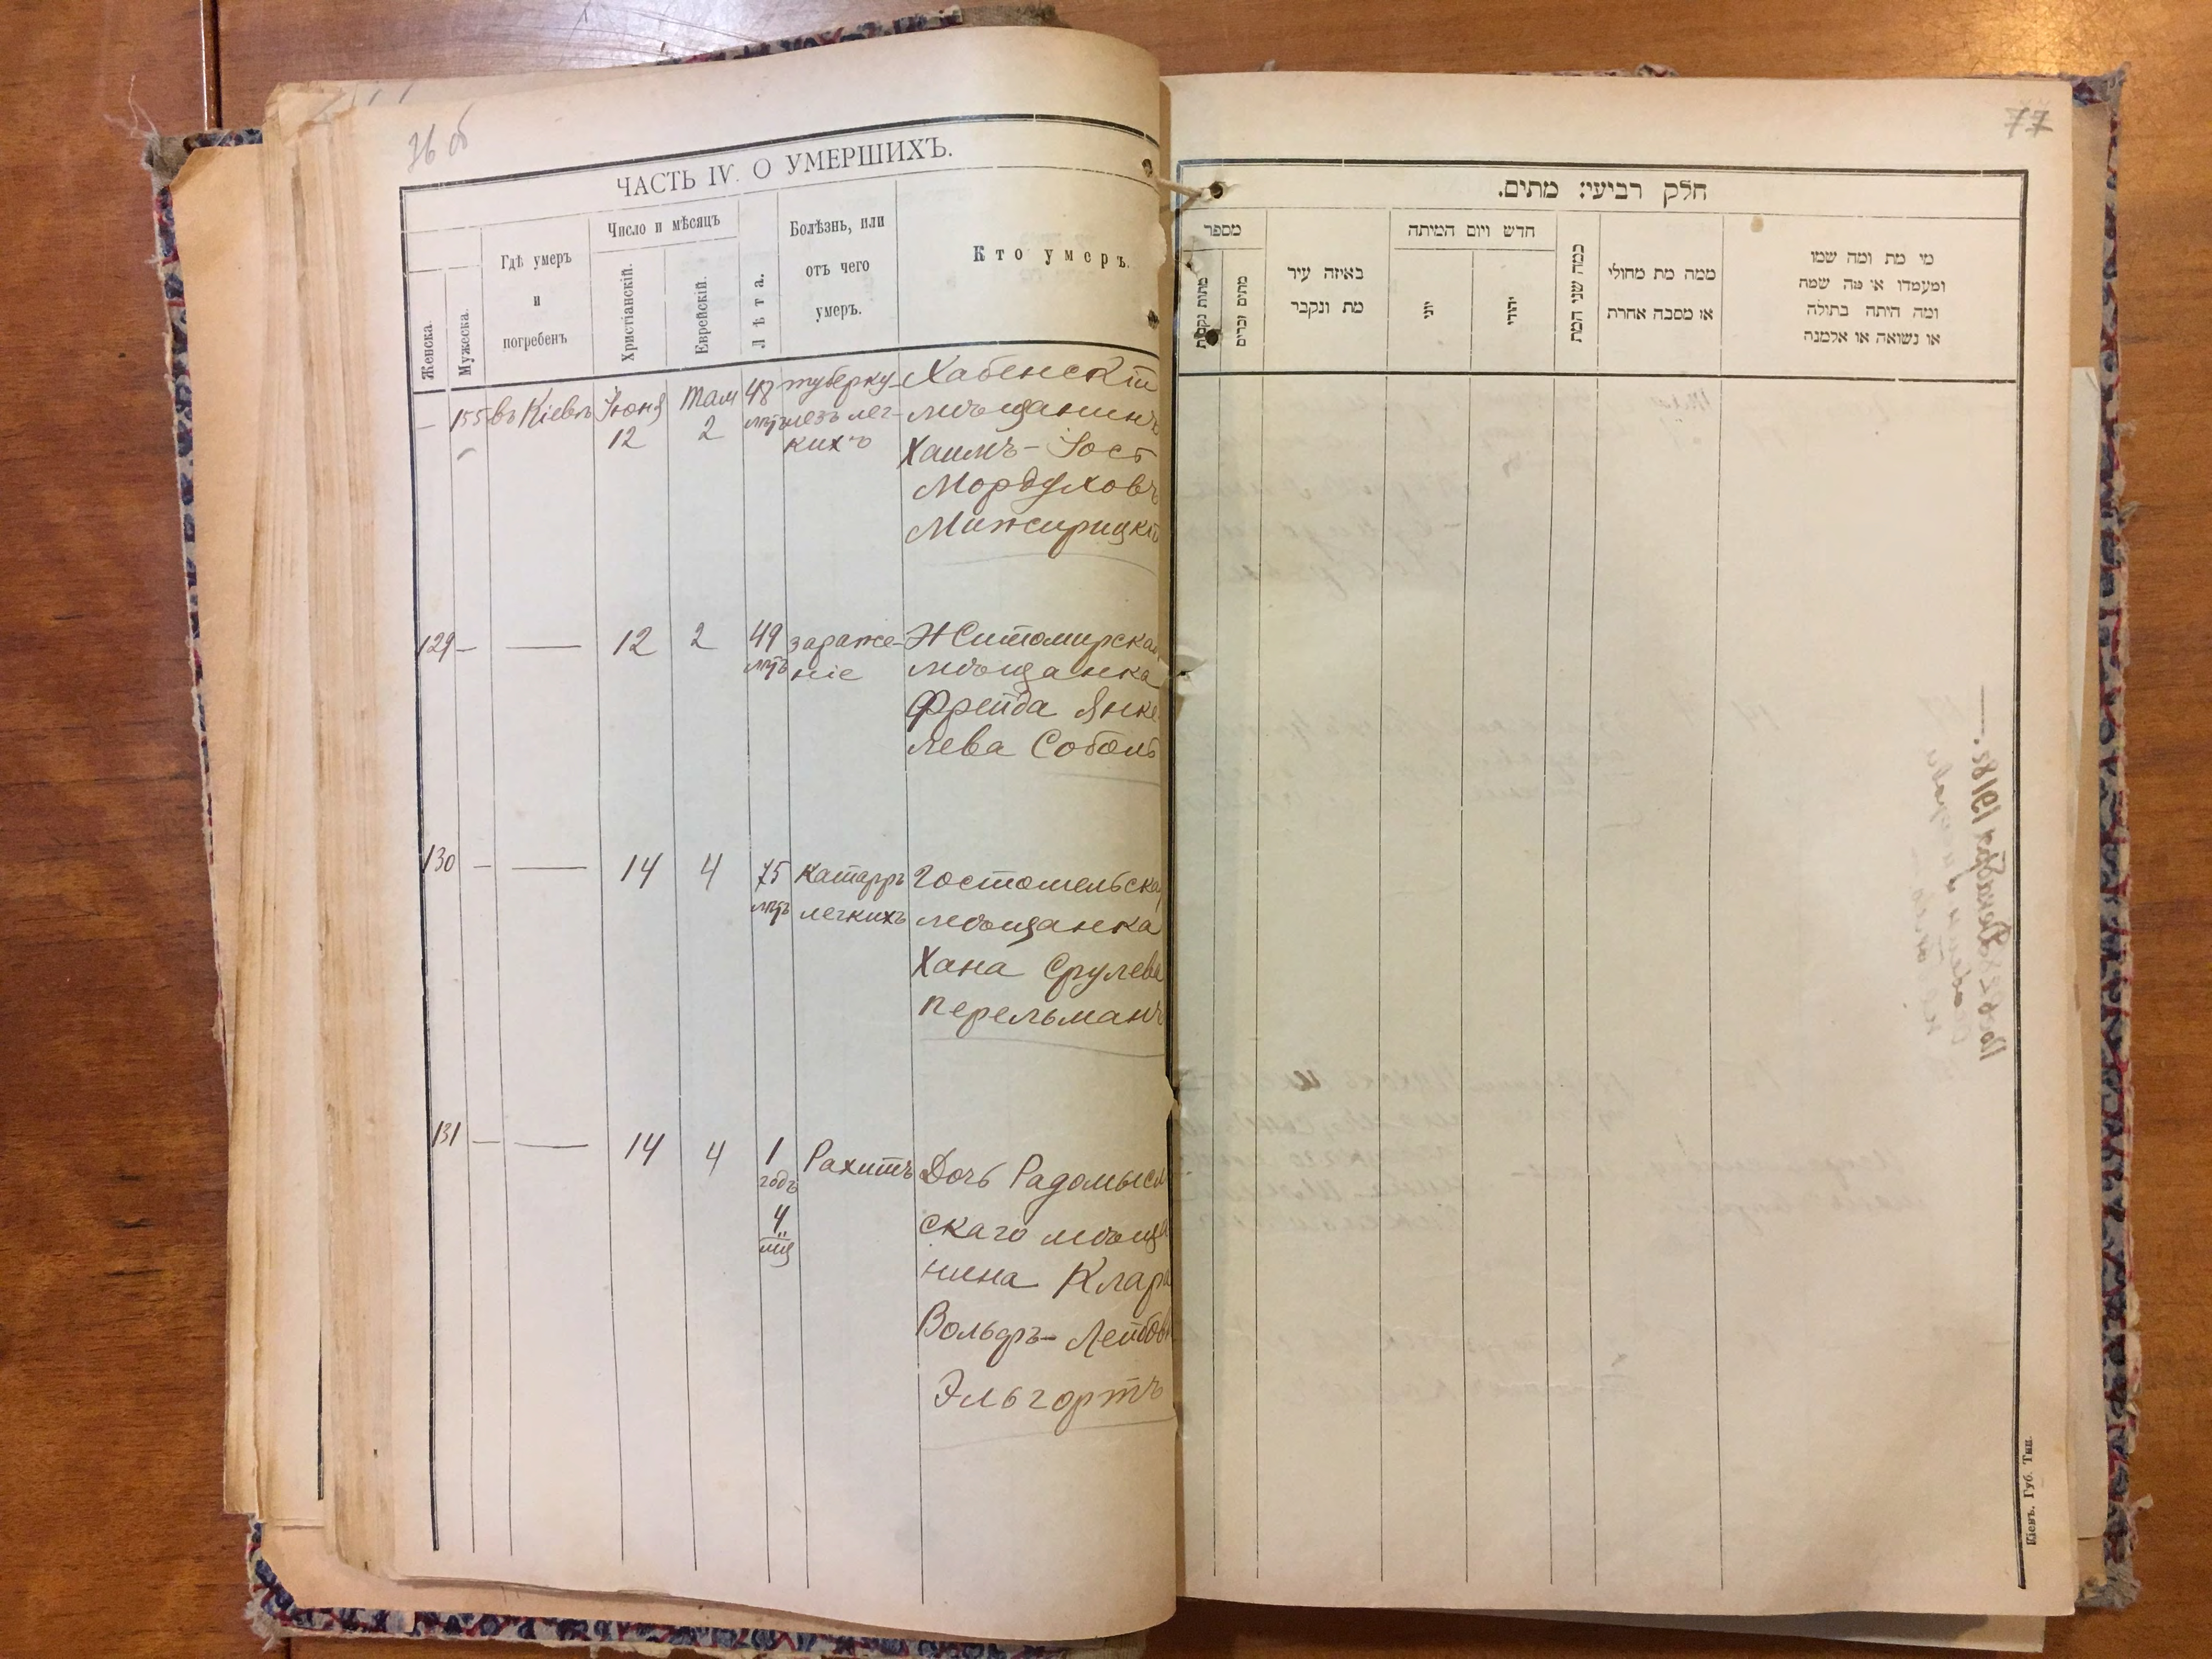 76 об
ЧАСТЬ IV. О УМЕРШИХЪ.
Женска.
Мужеска.
Гдѣ умеръ
и
погребенъ
Число и мѣсяцъ
Христіанскій.
Еврейскій.
Лѣта.
Болѣзнь, или
отъ чего
умеръ.
Кто умеръ.
— 155 въ Кіевѣ Іюня 12 Там 2 48 лѣтъ туберку-
лезъ лег-
кихъ
Хабенскій
мѣщанинъ
Хаимъ-Іось
Мордуховъ
Межирицкій
129 — — 12 2 49 лѣтъ зараже-
ніе
Житомирская
мѣщанка
Фрейда Янке-
лева Соболь
130 — — 14 4 75 лѣтъ Катарръ
легкихъ
Гостомельская
мѣщанка
Хана Срулева
Перельманъ
131 — — 14 4 1 годъ 4 мц Рахитъ
Дочь Радомысль
скаго мѣща
нина Клара
Вольфъ-Лейбова
Эльгортъ
77
חלק רביעי: מתים.
מספר
מתות נקבות
מתים זכרים
באיזה עיר
מת ונקבר
חדש ויום המיתה
יוני
יהודי
כמה שני המת
ממה מת מחולי
או מסבה אחרת
מי מת ומה שמו
ומעמדו או מה שמה
ומה היתה בתולה
או נשואה או אלמנה
Кіевъ. Губ. Тип.